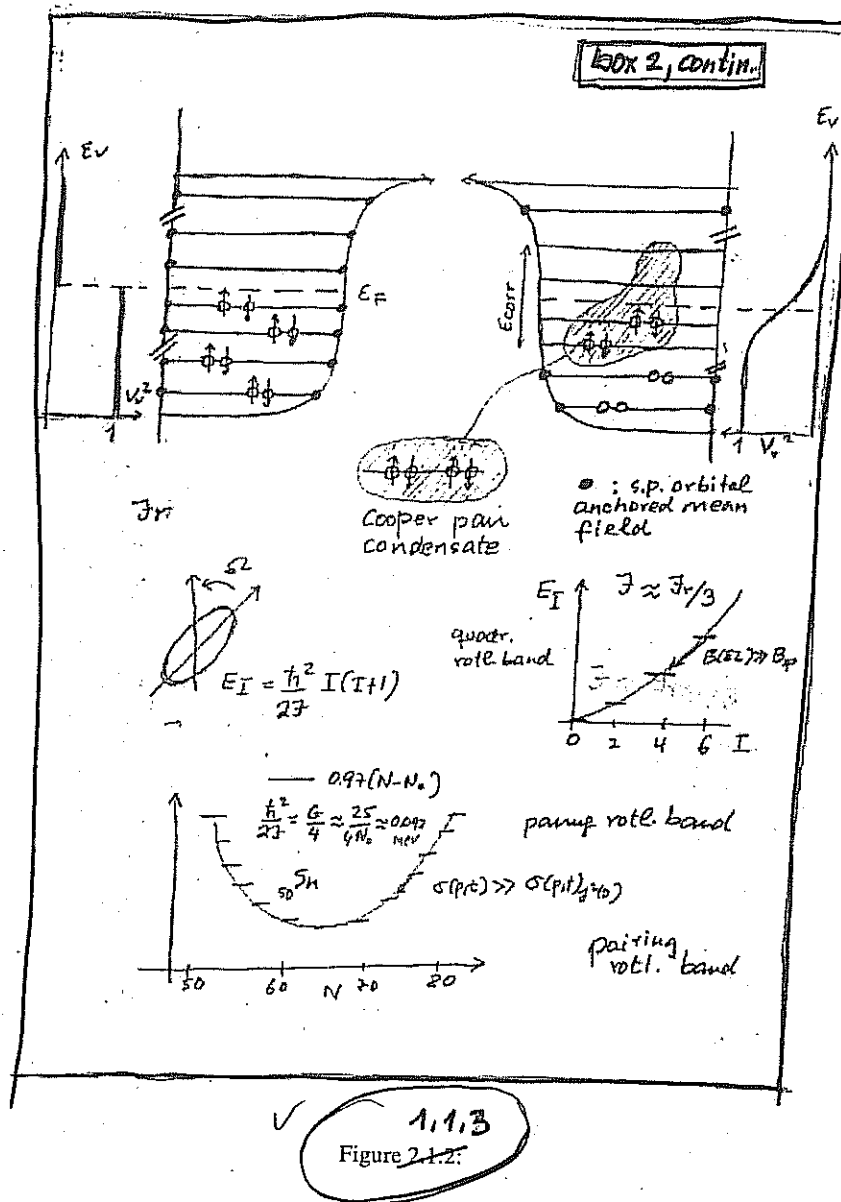 box 2, contin.
Eν
Eν
εF
Ecorr
Vν²
1
1
Vν²
Cooper pair
condensate
● : s.p. orbital
anchored mean
field
ℑr
Ω
E_I = ħ²/2ℑ I(I+1)
quadr.
rotl. band
E_I
ℑ ≈ ℑr/3
B(E2) ≫ Bsp
ℑ
0 2 4 6 I
— 0.97(N-N₀)
ħ²/2ℑ = G/4 ≈ 25/4N₀ ≈ 0.092 MeV
pairing rotl. band
₅₀Sn
σ(p,t) ≫
pairing
rotl. band
50 60 N 70 80
1.1.3
Figure 2.1.2: